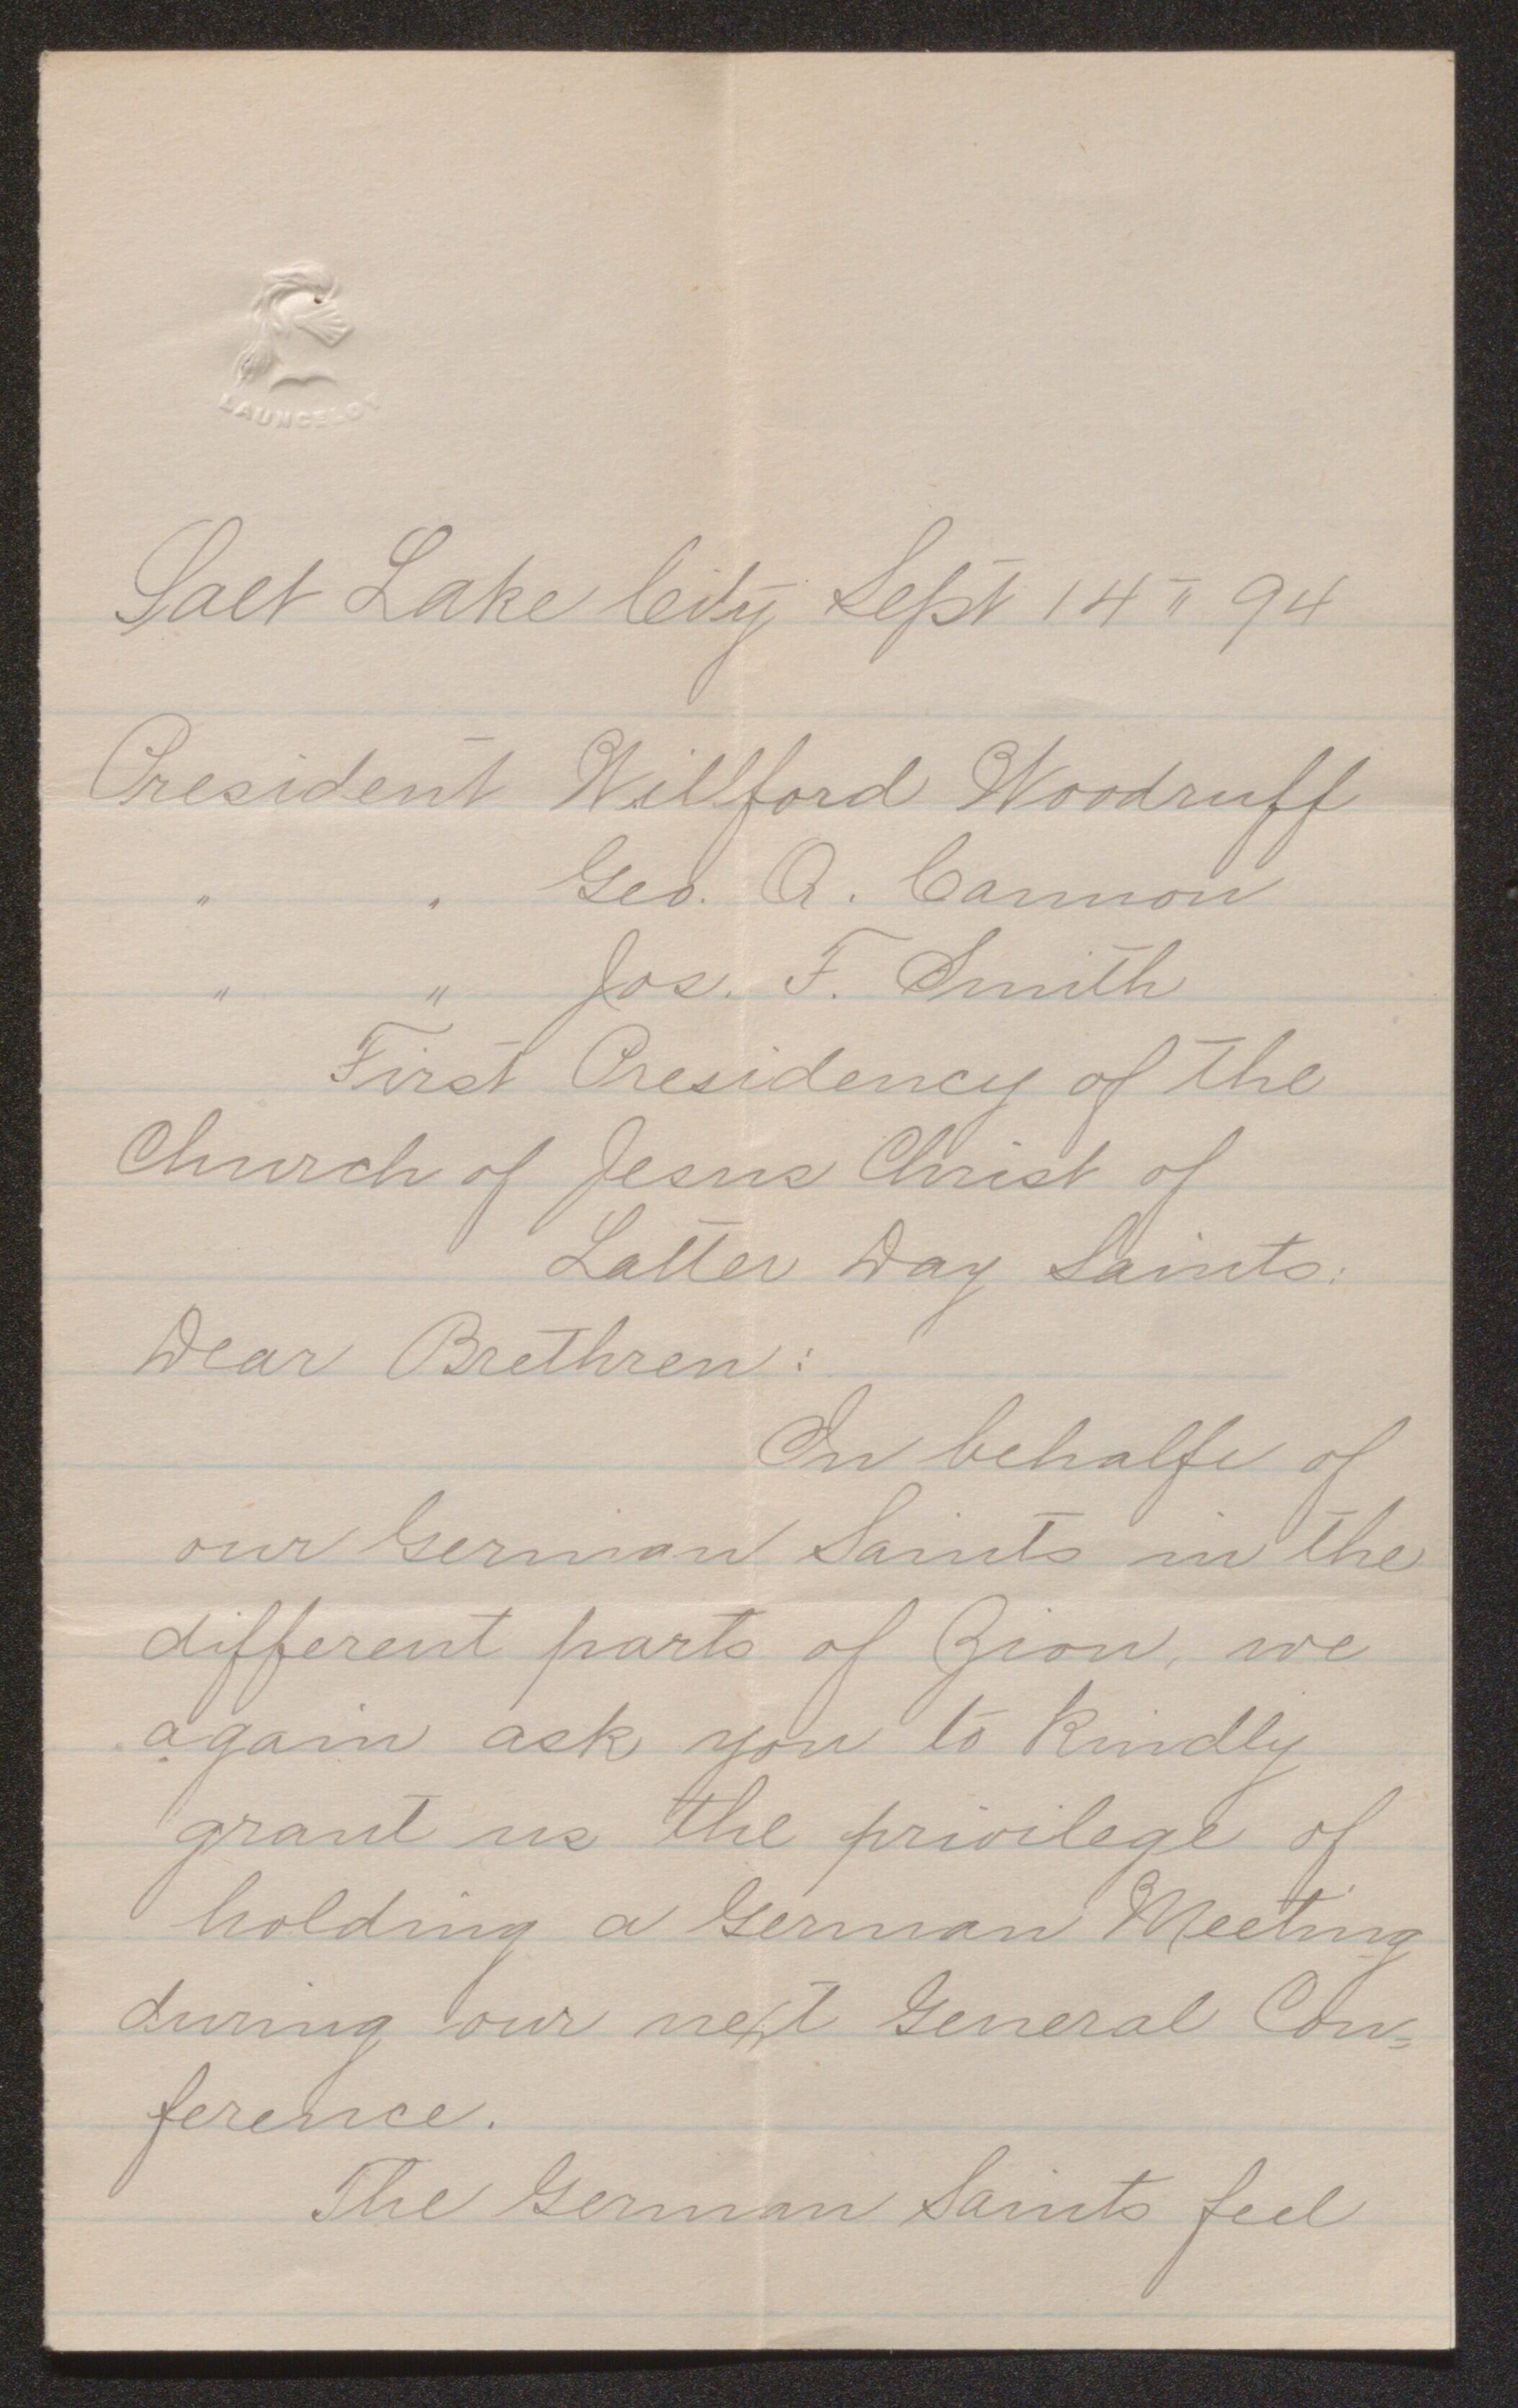 LAUNCELOT
Salt Lake City Sept 14" 94
President Willford Woodruff
" " Geo. Q. Cannon
" " Jos. F. Smith
First Presidency of the
Church of Jesus Christ of
Latter Day Saints:
Dear Brethren:
In behalfe of
our German Saints in the
different parts of Zion, we
again ask you to kindly
grant us the privilege of
holding a German Meeting
during our next General Con=
ference.
The German Saints feel